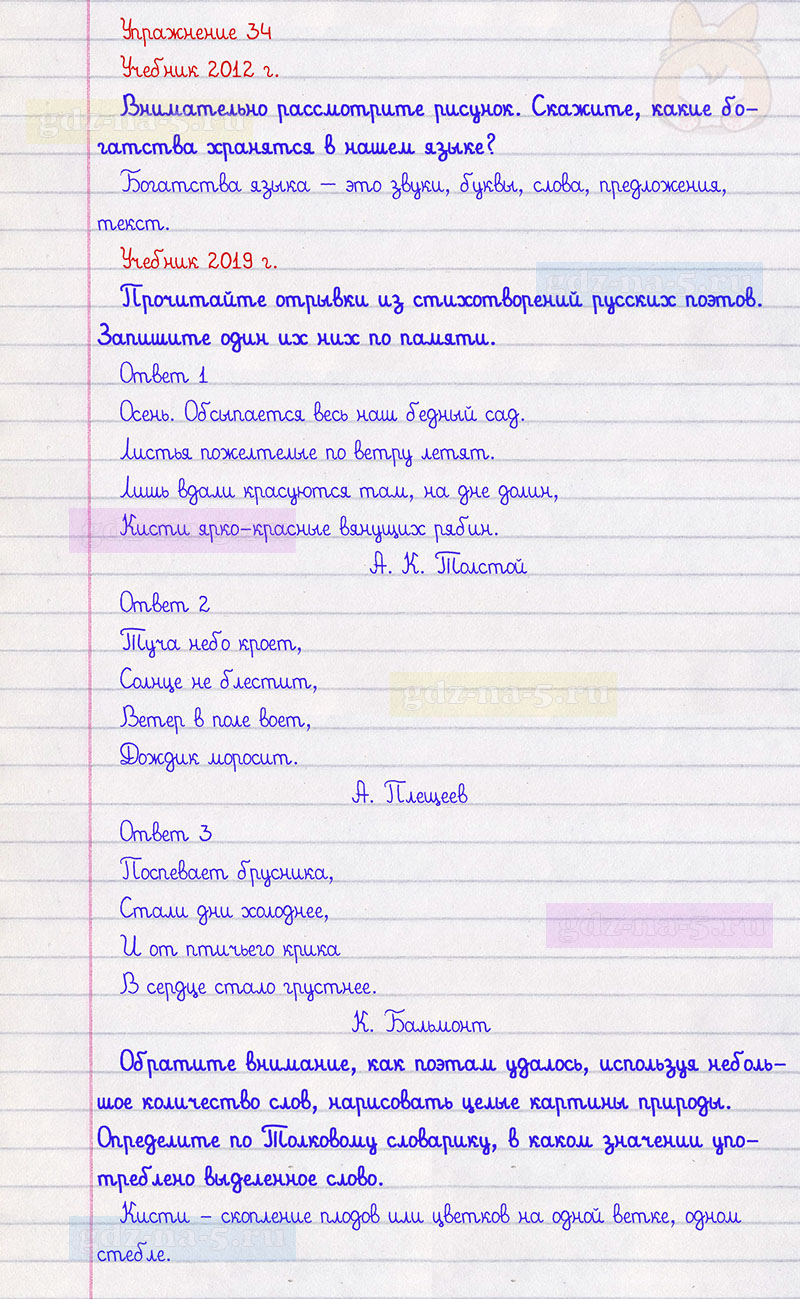 Упражнение 34
Учебник 2012 г.
Внимательно рассмотрите рисунок. Скажите, какие бо-
gdz-na-5.ru
гатства хранятся в нашем языке?
Богатства языка – это звуки, буквы, слова, предложения,
текст.
Учебник 2019 г.
gdz-na-5.ru
Прочитайте отрывки из стихотворений русских поэтов.
Запишите один их них по памяти.
Ответ 1
Осень. Обсыпается весь наш бедный сад.
Листья пожелтелые по ветру летят.
Лишь вдали красуются там, на дне долин,
Кисти ярко-красные вянущих рябин.
gdz-na-5.ru
А. К. Толстой
Ответ 2
Туча небо кроет,
Солнце не блестит,
gdz-na-5.ru
Ветер в поле воет,
Дождик моросит.
А. Плещеев
Ответ 3
Поспевает брусника,
Стали дни холоднее,
gdz-na-5.ru
И от птичьего крика
В сердце стало грустнее.
К. Бальмонт
Обратите внимание, как поэтам удалось, используя неболь-
шое количество слов, нарисовать целые картины природы.
Определите по Толковому словарику, в каком значении упо-
треблено выделенное слово.
Кисти – скопление плодов или цветков на одной ветке, одном
gdz-na-5.ru
стебле.